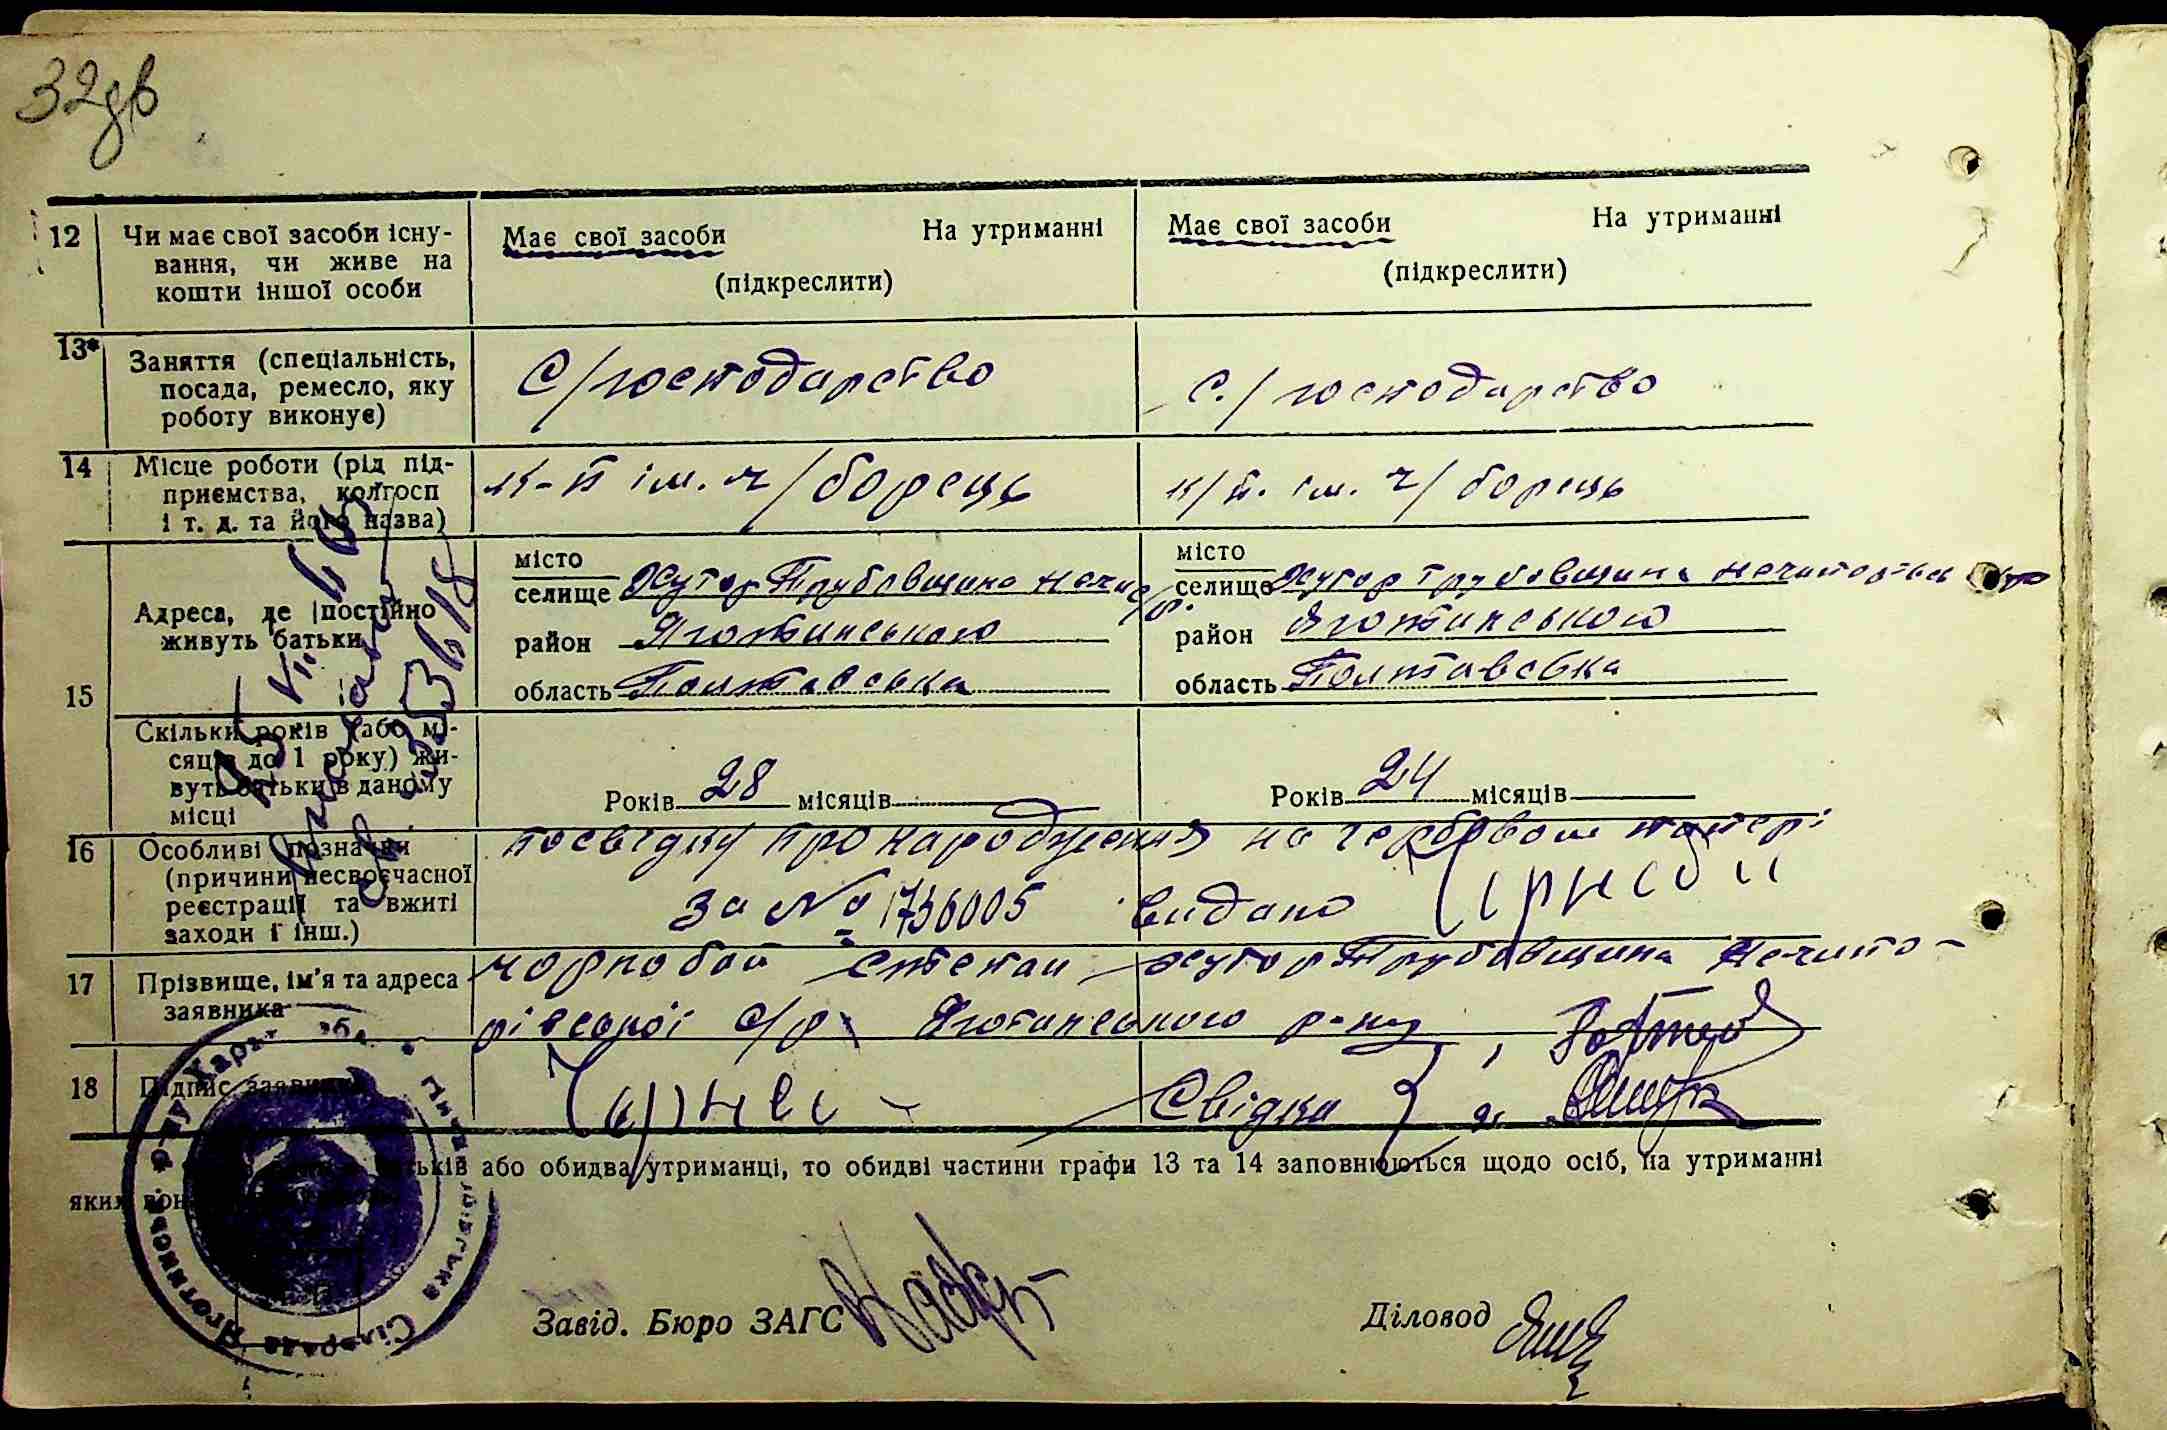 32зв
12 Чи має свої засоби існу- Має свої засоби На утриманні Має свої засоби На утриманні
вання, чи живе на (підкреслити) (підкреслити)
кошти іншої особи
13* Заняття (спеціальність, С/господарство С./господарство
посада, ремесло, яку
роботу виконує)
14 Місце роботи (рід під- к-п ім. ч/борець к/п. ім. ч/борець
приємства, колгосп
і т. д. та його назва)
15 Адреса, де постійно місто місто
живуть батьки селище Хутор Трубовщина селище Хутор Трубовщина
район Яготинського район Яготинського
область Полтавська область Полтавська
Скільки років (або мі-
сяців до 1 року) жи-
вуть батьки в даному Років 28 місяців Років 24 місяців
місці
16 Особливі позначки посвідку про народження на гербовом папері
(причини несвоєчасної за № 1736005 видано
реєстрації та вжиті
заходи і інш.)
17 Прізвище, ім'я та адреса Чорнобай Степан хутор Трубовщина Нечипо-
заявника рівської с/р Яготинського р-ну
18 Підпис заявника Свідки 1, 2.
батьків або обидва утриманці, то обидві частини графи 13 та 14 заповнюються щодо осіб, на утриманні
яких вони
Завід. Бюро ЗАГС Діловод
Сільрада Яготинськ. р-ну Харк. обл.